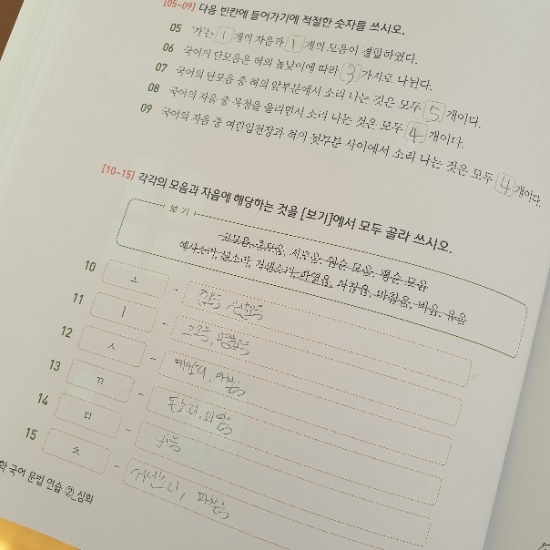 [05~09] 다음 빈칸에 들어가기에 적절한 숫자를 쓰시오.
05 '가'는 1개의 자음과 1개의 모음이 결합하였다.
06 국어의 단모음은 혀의 높낮이에 따라 3가지로 나뉜다.
07 국어의 단모음 중 혀의 앞부분에서 소리 나는 것은 모두 5개이다.
08 국어의 자음 중 목청을 울리면서 소리 나는 것은 모두 4개이다.
09 국어의 자음 중 여린입천장과 혀의 뒷부분 사이에서 소리 나는 것은 모두 4개이다.
[10~15] 각각의 모음과 자음에 해당하는 것을 [보기]에서 모두 골라 쓰시오.
보기
고모음, 중모음, 저모음, 원순 모음, 평순 모음
예사소리, 된소리, 거센소리, 파열음, 파찰음, 마찰음, 비음, 유음
10 ㅗ -
11 ㅣ - 고모음, 평순모음
12 ㅅ - 예사소리, 마찰음
13 ㄲ - 된소리, 파열음
14 ㅁ - 비음
15 ㅊ - 거센소리, 파찰음
국어 문법 연습 2_심화